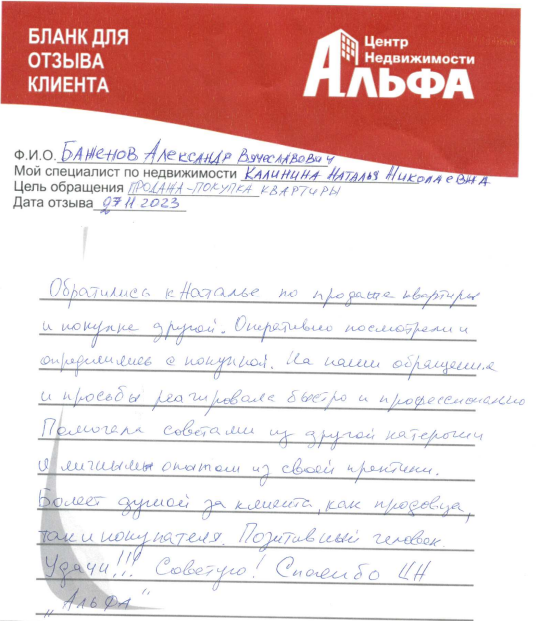 БЛАНК ДЛЯ
ОТЗЫВА
КЛИЕНТА
Центр
Недвижимости
АЛЬФА
Ф.И.О. БАЖЕНОВ АЛЕКСАНДР ВЯЧЕСЛАВОВИЧ
Мой специалист по недвижимости КАЛИНИНА НАТАЛЬЯ НИКОЛАЕВНА
Цель обращения ПРОДАЖА-ПОКУПКА КВАРТИРЫ
Дата отзыва 27 11 2023
Обратились к Наталье по продаже квартиры
и покупке другой. Оперативно посмотрели и
определились с покупкой. На наши обращения
и просьбы реагировала быстро и профессионально
Помогала советами из другой категории
и личным опытом из своей практики.
Болеет душой за клиента, как продавца,
так и покупателя. Позитивный человек.
Удачи!!! Советую! Спасибо ЦН
„Альфа"